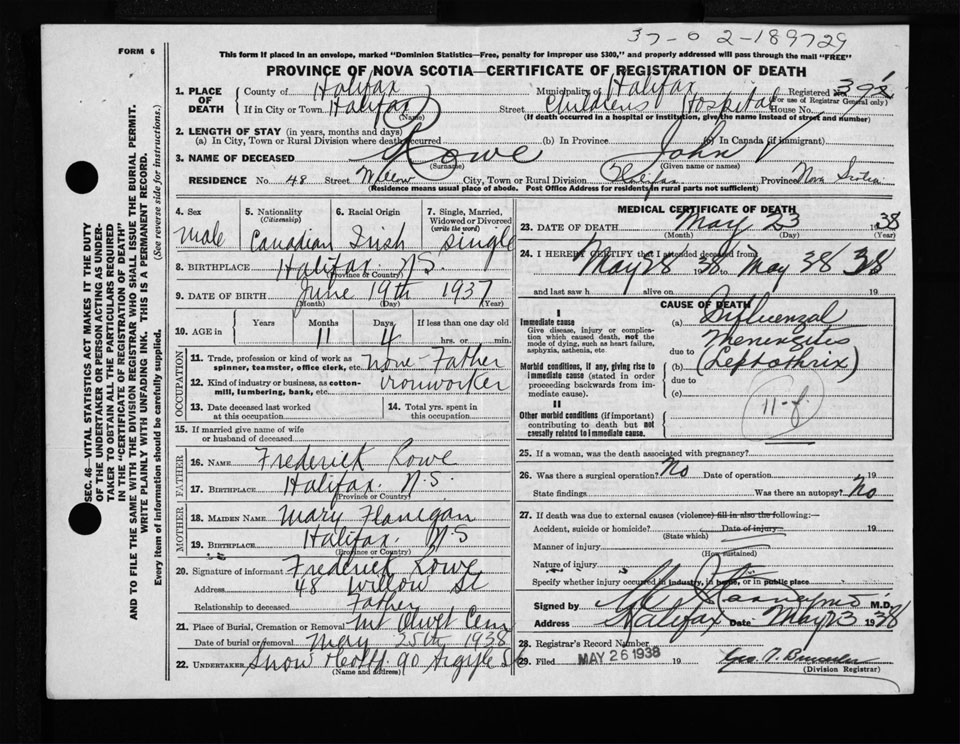 37-0 2-189729
FORM 6
This form if placed in an envelope, marked "Dominion Statistics—Free, penalty for improper use $300," and properly addressed will pass through the mail "FREE"
PROVINCE OF NOVA SCOTIA—CERTIFICATE OF REGISTRATION OF DEATH
1. PLACE OF DEATH
County of Halifax Municipality of Halifax Registered No.
(For use of Registrar General only)
If in City or Town Halifax (Name) Street Childrens Hospital House No.
(If death occurred in a hospital or institution, give the name instead of street and number)
2. LENGTH OF STAY (in years, months and days)
(a) In City, Town or Rural Division where death occurred (b) In Province (c) In Canada (if immigrant)
3. NAME OF DECEASED Rowe (Surname) John V (Given name or names)
RESIDENCE No. 48 Street Willow City, Town or Rural Division Halifax Province Nova Scotia
(Residence means usual place of abode. Post Office Address for residents in rural parts not sufficient)
4. Sex Male
5. Nationality (Citizenship) Canadian
6. Racial Origin Irish
7. Single, Married, Widowed or Divorced (write the word) Single
8. BIRTHPLACE Halifax N.S.
(Province or Country)
9. DATE OF BIRTH June 19th 1937
(Month) (Day) (Year)
10. AGE in Years Months 11 Days 4 If less than one day old
hrs. or min.
OCCUPATION
11. Trade, profession or kind of work as spinner, teamster, office clerk, etc. none - Father
12. Kind of industry or business, as cotton-mill, lumbering, bank, etc. ironworker
13. Date deceased last worked at this occupation
14. Total yrs. spent in this occupation
15. If married give name of wife or husband of deceased
FATHER
16. NAME Frederick Rowe
17. BIRTHPLACE Halifax. N.S.
(Province or Country)
MOTHER
18. MAIDEN NAME Mary Flanigan
19. BIRTHPLACE Halifax. N.S
(Province or Country)
20. Signature of informant Frederick Rowe
Address 48 Willow St
Relationship to deceased Father
21. Place of Burial, Cremation or Removal Mt Olivet Cem
Date of burial or removal May 25th 1938
22. UNDERTAKER Snow & Co Ltd. 90 Argyle St
(Name and address)
MEDICAL CERTIFICATE OF DEATH
23. DATE OF DEATH May 23 1938
(Month) (Day) (Year)
24. I HEREBY CERTIFY that I attended deceased from
May 28 1938 to May 38 38
and last saw h alive on 19
CAUSE OF DEATH
I
Immediate cause
Give disease, injury or complication which caused death, not the mode of dying, such as heart failure, asphyxia, asthenia, etc
Morbid conditions, if any, giving rise to immediate cause (stated in order proceeding backwards from immediate cause).
II
Other morbid conditions (if important) contributing to death but not causally related to immediate cause.
(a) Influenzal
Meningitis
due to
(b) (Leptothrix)
due to
(c)
11-f.
25. If a woman, was the death associated with pregnancy?
26. Was there a surgical operation? No Date of operation 19
State findings Was there an autopsy? No
27. If death was due to external causes (violence) fill in also the following:—
Accident, suicide or homicide? Date of injury 19
(State which)
Manner of injury
(How sustained)
Nature of injury
Specify whether injury occurred in industry, in home, or in public place
Signed by M.D.
Address Halifax Date May 23 1938
28. Registrar's Record Number
29. Filed MAY 26 1938 19
(Division Registrar)
SEC. 46—VITAL STATISTICS ACT MAKES IT THE DUTY
OF THE UNDERTAKER OR PERSON ACTING AS UNDER-
TAKER TO OBTAIN ALL THE PARTICULARS REQUIRED
IN THE "CERTIFICATE OF REGISTRATION OF DEATH"
AND TO FILE THE SAME WITH THE DIVISION REGISTRAR WHO SHALL ISSUE THE BURIAL PERMIT.
WRITE PLAINLY WITH UNFADING INK. THIS IS A PERMANENT RECORD.
Every item of information should be carefully supplied. (See reverse side for instructions.)